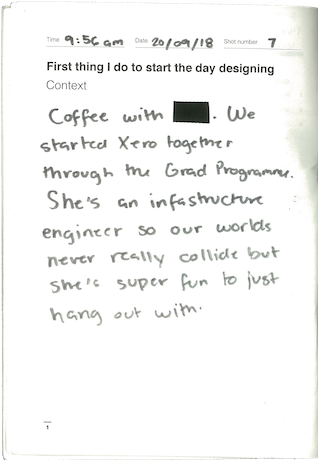 Time 9:56 am Date 20/09/18 Shot number 7
First thing I do to start the day designing
Context
Coffee with . We
started Xero together
through the Grad Programme.
She's an infastructure
engineer so our worlds
never really collide but
she's super fun to just
hang out with.
1